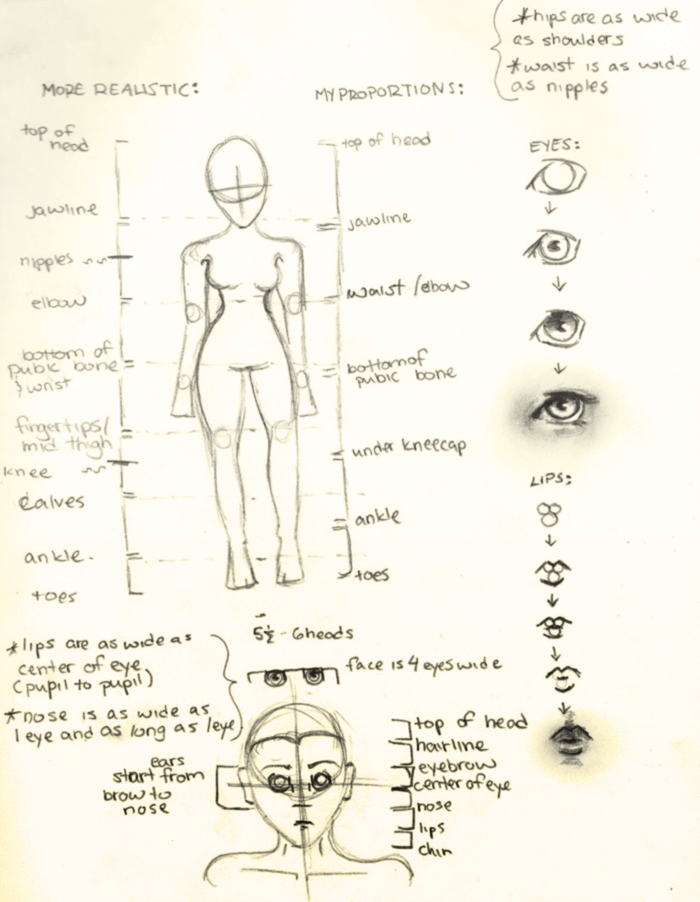 *hips are as wide
as shoulders
*waist is as wide
as nipples
MORE REALISTIC:
top of
head
jawline
nipples
elbow
bottom of
pubic bone
} wrist
fingertips/
mid thigh
knee
calves
ankle.
toes
MY PROPORTIONS:
top of head
jawline
waist/elbow
bottom of
pubic bone
under kneecap
ankle
toes
EYES:
LIPS:
5½ - 6 heads
*lips are as wide as
center of eye
(pupil to pupil)
*nose is as wide as
1 eye and as long as 1 eye
face is 4 eyes wide
ears
start from
brow to
nose
top of head
hairline
eyebrow
center of eye
nose
lips
chin